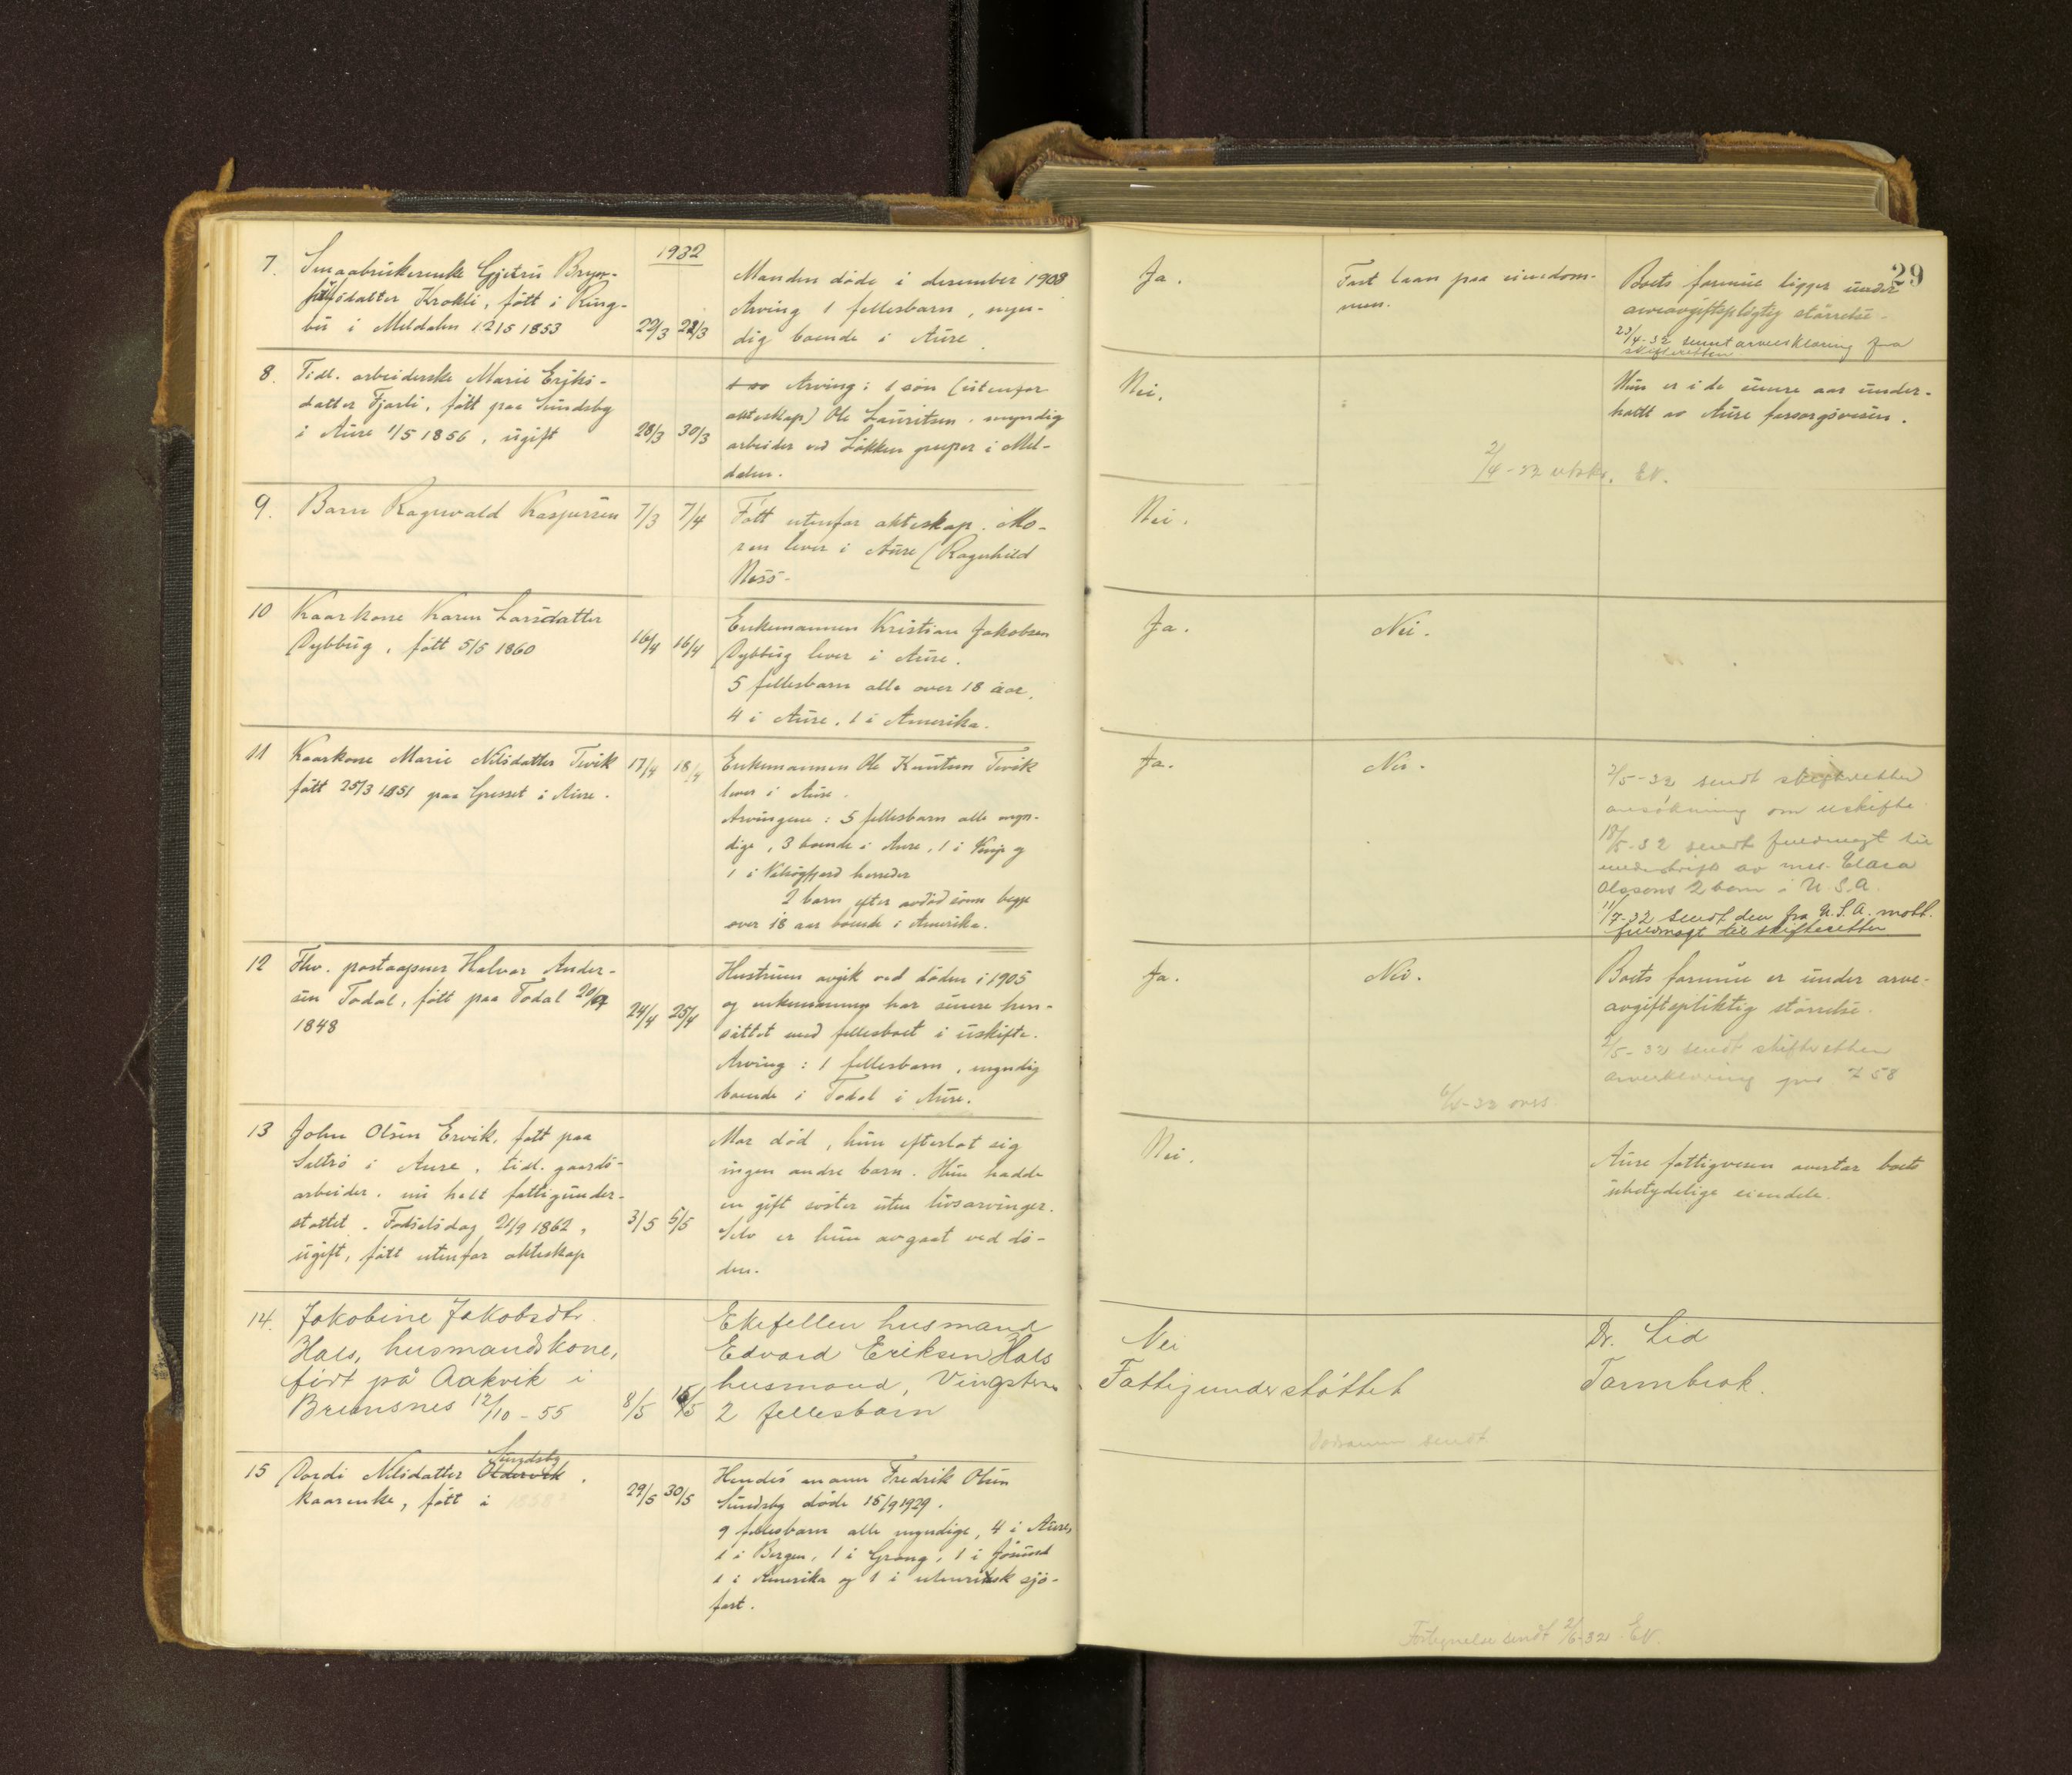 1932
29
7. Smaabrukerenke Gjetru Bryn-
datter Krokli, født i Ring-
bu i Meldalen 12/5 1853
22/3 22/3
Manden døde i desember 1908
Arving 1 fellesbarn, myn-
dig boende i Aure
Ja.
Fast laan paa eiendom-
men.
Boets formue ligger under
arveavgiftspligtig størrelse.
23/4-32 sendt arveerklæring fra
skifteretten
8. Tidl. arbeiderske Marie Eriks-
datter Fjærli, født paa Sundsby
i Aure 1/5 1856, ugift
28/3 30/3
Arving: 1 søn (utenfor
ekteskap) Ole Lauritsen, myndig
arbeider ved Løkken gruper i Mel-
dalen.
Nei.
Hun er i de senere aar under-
holdt av Aure forsorgsvesen.
2/4-32 utskr. EN.
9. Barn Ragnvald Kaspersen
7/3 7/4
Født utenfor ekteskap. Mo-
ren lever i Aure (Ragnhild
Ness.
Nei.
10 Kaarkone Karen Larsdatter
Dybbug, født 5/5 1860
16/4 16/4
Enkemannen Kristian Jakobsen
Dybbug lever i Aure.
5 fellesbarn alle over 18 aar,
4 i Aure, 1 i Amerika.
Ja.
Nei.
11 Kaarkone Marie Nilsdatter Tevik
født 25/3 1851 paa Gresset i Aure.
17/4 18/4
Enkemannen Ole Knutsen Tevik
lever i Aure.
Arvingene: 5 fellesbarn alle myn-
dige, 3 boende i Aure, 1 i og
1 i Valsøyfjord herreder
2 barn efter avdød sønn begge
over 18 aar boende i Amerika.
Ja.
Nei.
2/5-32 sendt skifteretten
ansøkning om uskifte.
18/5-32 sendt fuldmagt til
underskrift av mrs. Clara
Olssons 2 barn i U.S.A.
11/7-32 sendt den fra U.S.A. mott.
fuldmagt til skifteretten
12 Fhv. postaapner Halvor Ander-
sen Todal, født paa Todal
1848
24/4 25/4
Hustruen avgik ved døden i 1905
og enkemannen har senere hen-
sittet med fellesboet i uskifte.
Arving: 1 fellesbarn, myndig
boende i Todal i Aure.
Ja.
Nei.
Boets formue er under arve-
avgiftspliktig størrelse.
2/5-32 sendt skifteretten
arveerklæring
13 John Olsen Ervik, født paa
Seltrø i Aure, tidl. gaards-
arbeider, nu helt fattigunder-
støttet. Fødselsdag 21/9 1862,
ugift, født utenfor ekteskap
3/5 5/5
Mor død, hun efterlot sig
ingen andre barn. Hun hadde
en gift søster uten livsarvinger.
Selv er hun avgaat ved dø-
den.
Nei.
Aure fattigvesen overtar boets
ubetydelige eiendele.
14. Jakobine Jakobsdtr.
Hals, husmandskone,
født på Aakvik i
Bremsnes 12/10-55
8/5
Ektefellen husmand
Edvard Eriksen Hals
husmand, Vingsteren
2 fellesbarn
Nei
Fattigunderstøttet
Dr. Lid
Tarmbrok.
sendt
15 Dordi Nilsdatter Oldervik Sundsby.
kaarenke, født i 1858?
29/5 30/5
Hendes mann Fredrik Olsen
Sundsby døde 15/9 1929.
9 fellesbarn alle myndige, 4 i Aure,
1 i Bergen, 1 i Grong, 1 i
1 i Amerika og 1 i utenriksk sjø-
fart.
Fortegnelse sendt 2/6-32 EN.